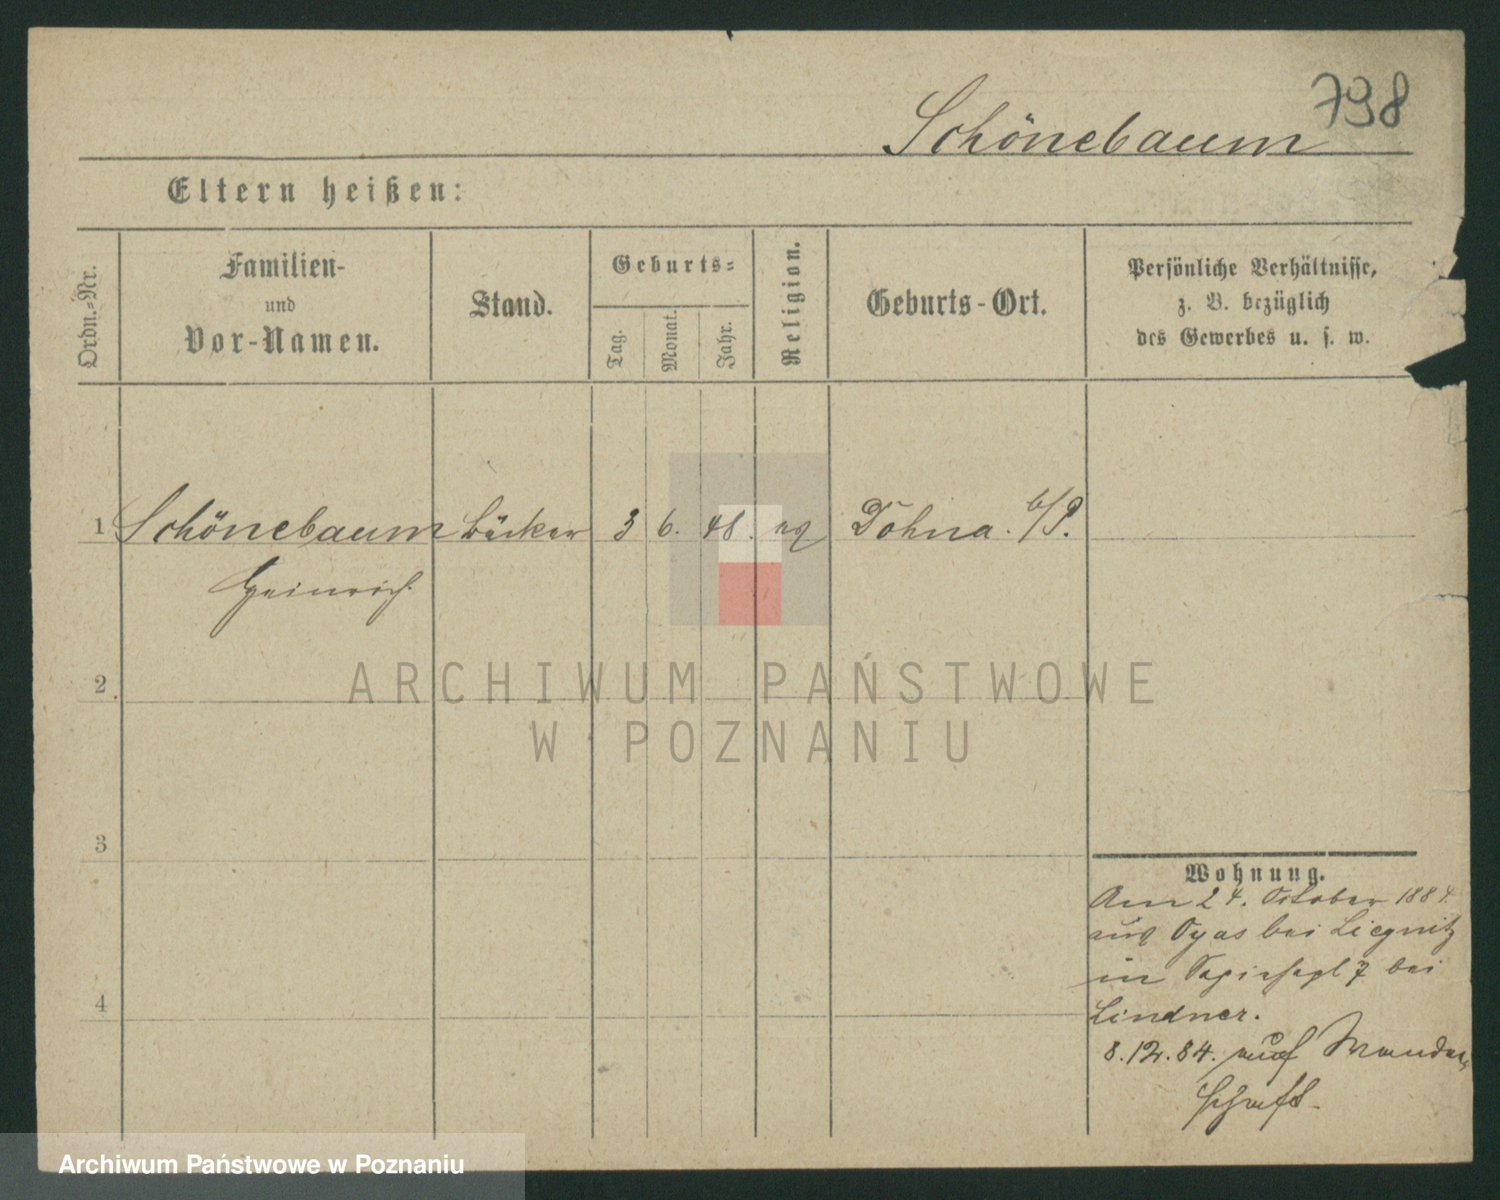 798
Schönebaum
Eltern heißen:
Ordn.-Nr.
Familien-
und
Vor-Namen.
Stand.
Geburts-
Tag.
Monat.
Jahr.
Religion.
Geburts-Ort.
Persönliche Verhältnisse,
z. B. bezüglich
des Gewerbes u. s. w.
1 Schönebaum Bäcker 3 6. 48. Dohna. b/P.
Heinrich
2
3
4
Wohnung.
Am 24. Oktober 1884
aus Oyas bei Liegnitz
in 7 bei
Lindner.
8.12.84. auf Wander
schaft.
ARCHIWUM PAŃSTWOWE
W POZNANIU
Archiwum Państwowe w Poznaniu